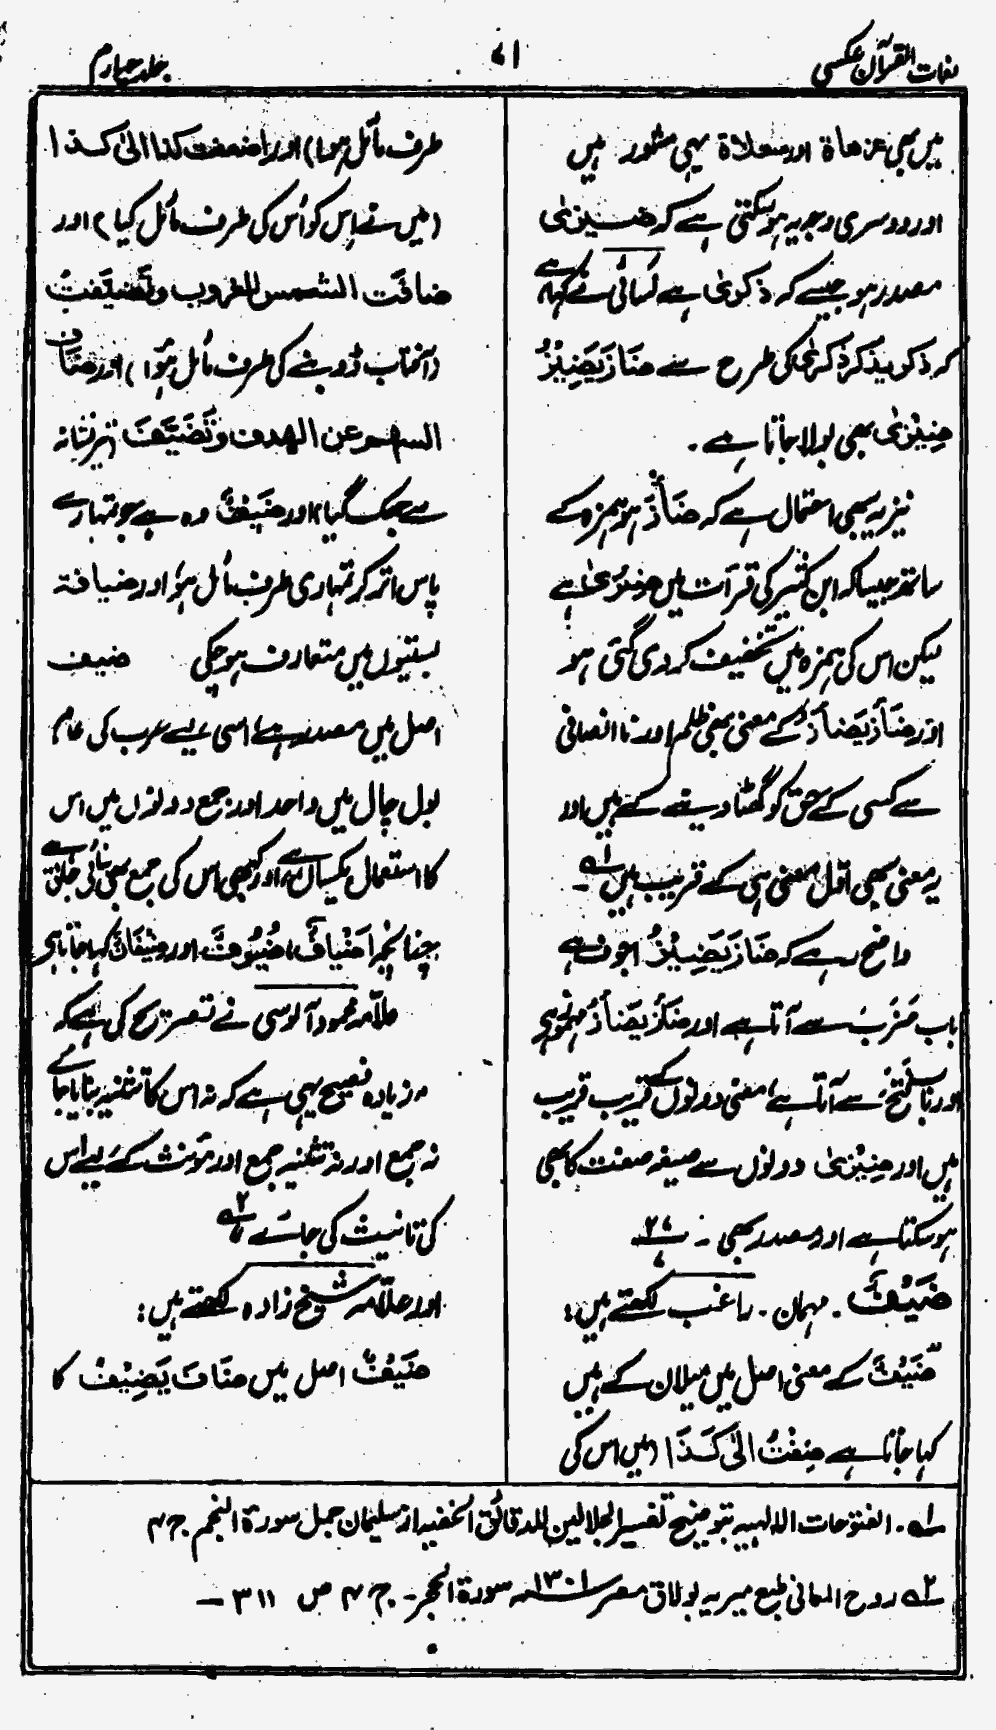 لغات القرآن عکسی
۷۱
جلد چہارم
میں بھی عزھاۃ اور سعلاۃ یہی مشہور ہیں
اور دوسری وجہ یہ ہو سکتی ہے کہ ضیزیٰ
مصدر ہو جیسے کہ ذکریٰ ہے کسائی نے کہا ہے
کہ ذکر یذکر ذکریٰ کی طرح سے ضَازَ یَضِیْزُ
ضِیْزیٰ بھی بولا جاتا ہے۔
نیز یہ بھی احتمال ہے کہ ضَأَزَ ہو ہمزہ کے
ساتھ جیسا کہ ابن کثیر کی قرأت میں ضِئْزیٰ ہے
لیکن اس کی ہمزہ میں تخفیف کر دی گئی ہو
اور ضَأَزَ یَضْأَزُ کے معنی بھی ظلم اور نا انصافی
سے کسی کے حق کو گھٹا دینے کے ہیں اور
یہ معنی بھی اول معنی ہی کے قریب ہیں لہ۱۔
واضح رہے کہ ضَازَ یَضِیْزُ اجوف ہے
باب ضَرَبَ سے آتا ہے اور ضَئَزَ یَضْأَزُ مہموز ہے
اور باب فَتَحَ سے آتا ہے، معنی دونوں کے قریب قریب
ہیں اور ضِیْزیٰ دونوں سے صیغہ صفت کا بھی
ہو سکتا ہے اور مصدر بھی۔ ۲۷
ضَیْفٌ۔ مہمان۔ راغب لکھتے ہیں:
ضَیْفٌ کے معنی اصل میں میلان کے ہیں
کہا جاتا ہے ضِفْتُ الیٰ کَذَا (میں اس کی
طرف مائل ہوا) اور اضفت کذا الیٰ کذا
(میں نے اس کو اُس کی طرف مائل کیا) اور
ضافَت الشمس للغروب وتَضَیَّفَتْ
(آفتاب ڈوبنے کی طرف مائل ہوا) اور ضَافَ
السھم عن الھدف وتَضَیَّفَ (تیر نشانہ
سے جھک گیا) اور ضَیْفٌ وہ ہے جو تمہارے
پاس اتر کر تمہاری طرف مائل ہو، اور ضیافۃ
بستیوں میں متعارف ہو چکی ضیف
اصل میں مصدر ہے، اسی لیے عرب کی عام
بول چال میں واحد اور جمع دونوں میں اس
کا استعمال یکساں ہے، اور کبھی اس کی جمع بھی بنائی جاتی ہے
چنانچہ اَضْیَافٌ، ضُیُوفٌ اور ضِیْفَانٌ کہا جاتا ہے
علامہ محمود آلوسی نے تصریح کی ہے کہ
"زیادہ فصیح یہی ہے کہ نہ اس کا تثنیہ بنایا جائے
نہ جمع اور نہ تثنیہ جمع اور مؤنث کے لیے اس
کی تانیث کی جائے" لہ۲
اور علامہ شیخ زادہ لکھتے ہیں:
ضَیْفٌ اصل میں ضَافَ یَضِیْفُ کا
لہ۱۔ الفتوحات الالہیہ بتوضیح تفسیر الجلالین للدقائق الخفیہ از سلیمان جمل سورۃ النجم ج ۴
لہ۲ روح المعانی طبع میریہ بولاق مصر ۱۳۰۱ھ سورۃ الحجر۔ ج ۴ ص ۳۱۱ ۔